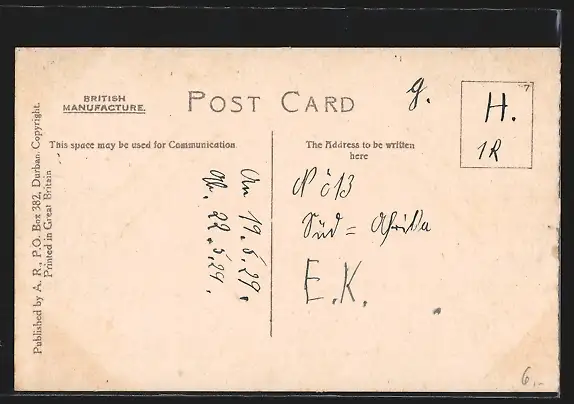 BRITISH
MANUFACTURE.
POST CARD
g.
H.
1R
This space may be used for Communication.
The Address to be written
here
Published by A. R., P.O. Box 382, Durban. Copyright.
Printed in Great Britain
An 19.5.29.
Ab. 22.5.29.
No 13
Süd = Afrika
E.K.
6.-